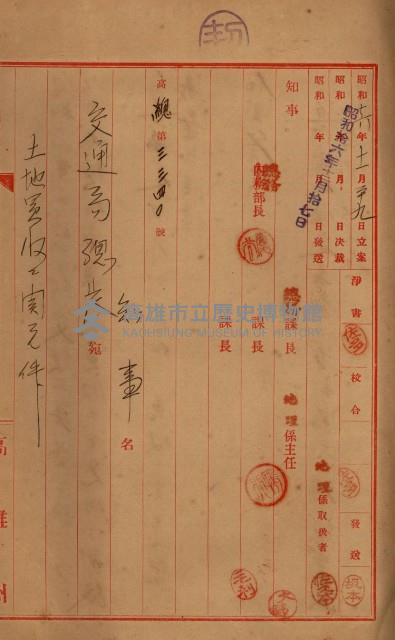 昭和十六年十一月十九日立案
昭和　年　月　日決裁
昭和　年　月　日發送
昭和拾六年十一月拾七日
淨書
校合
發送
坂本
知事
總務部長
總務課長
課長
課長
地理係主任
地理係取扱者
高總第三三四〇號
知事名
交通局總長宛
土地買收ニ関スル件
高雄州
高雄市立歷史博物館
KAOHSIUNG MUSEUM OF HISTORY